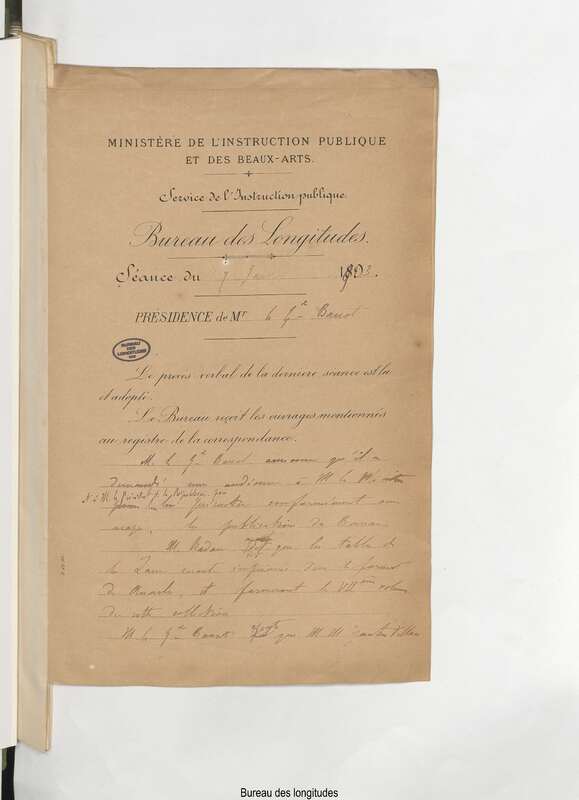 MINISTÈRE DE L'INSTRUCTION PUBLIQUE
ET DES BEAUX-ARTS.
Service de l'Instruction publique.
Bureau des Longitudes.
Séance du 7
PRÉSIDENCE de Mr le Gal Bassot
BUREAU DES LONGITUDES
Le procès verbal de la dernière séance est lu
et adopté.
Le Bureau reçoit les ouvrages mentionnés
au registre de la correspondance.
M. le Gal Bassot annonce qu'il a
demandé une audience à M. le Ministre
conformément au
usage, les publications du Bureau
M. Radau que les tables de
la Lune seront imprimées dans le format
des Annales, et formeront le VIIème volume
de cette collection
M. le Gal Bassot que MM Gauthier Villars
Bureau des longitudes